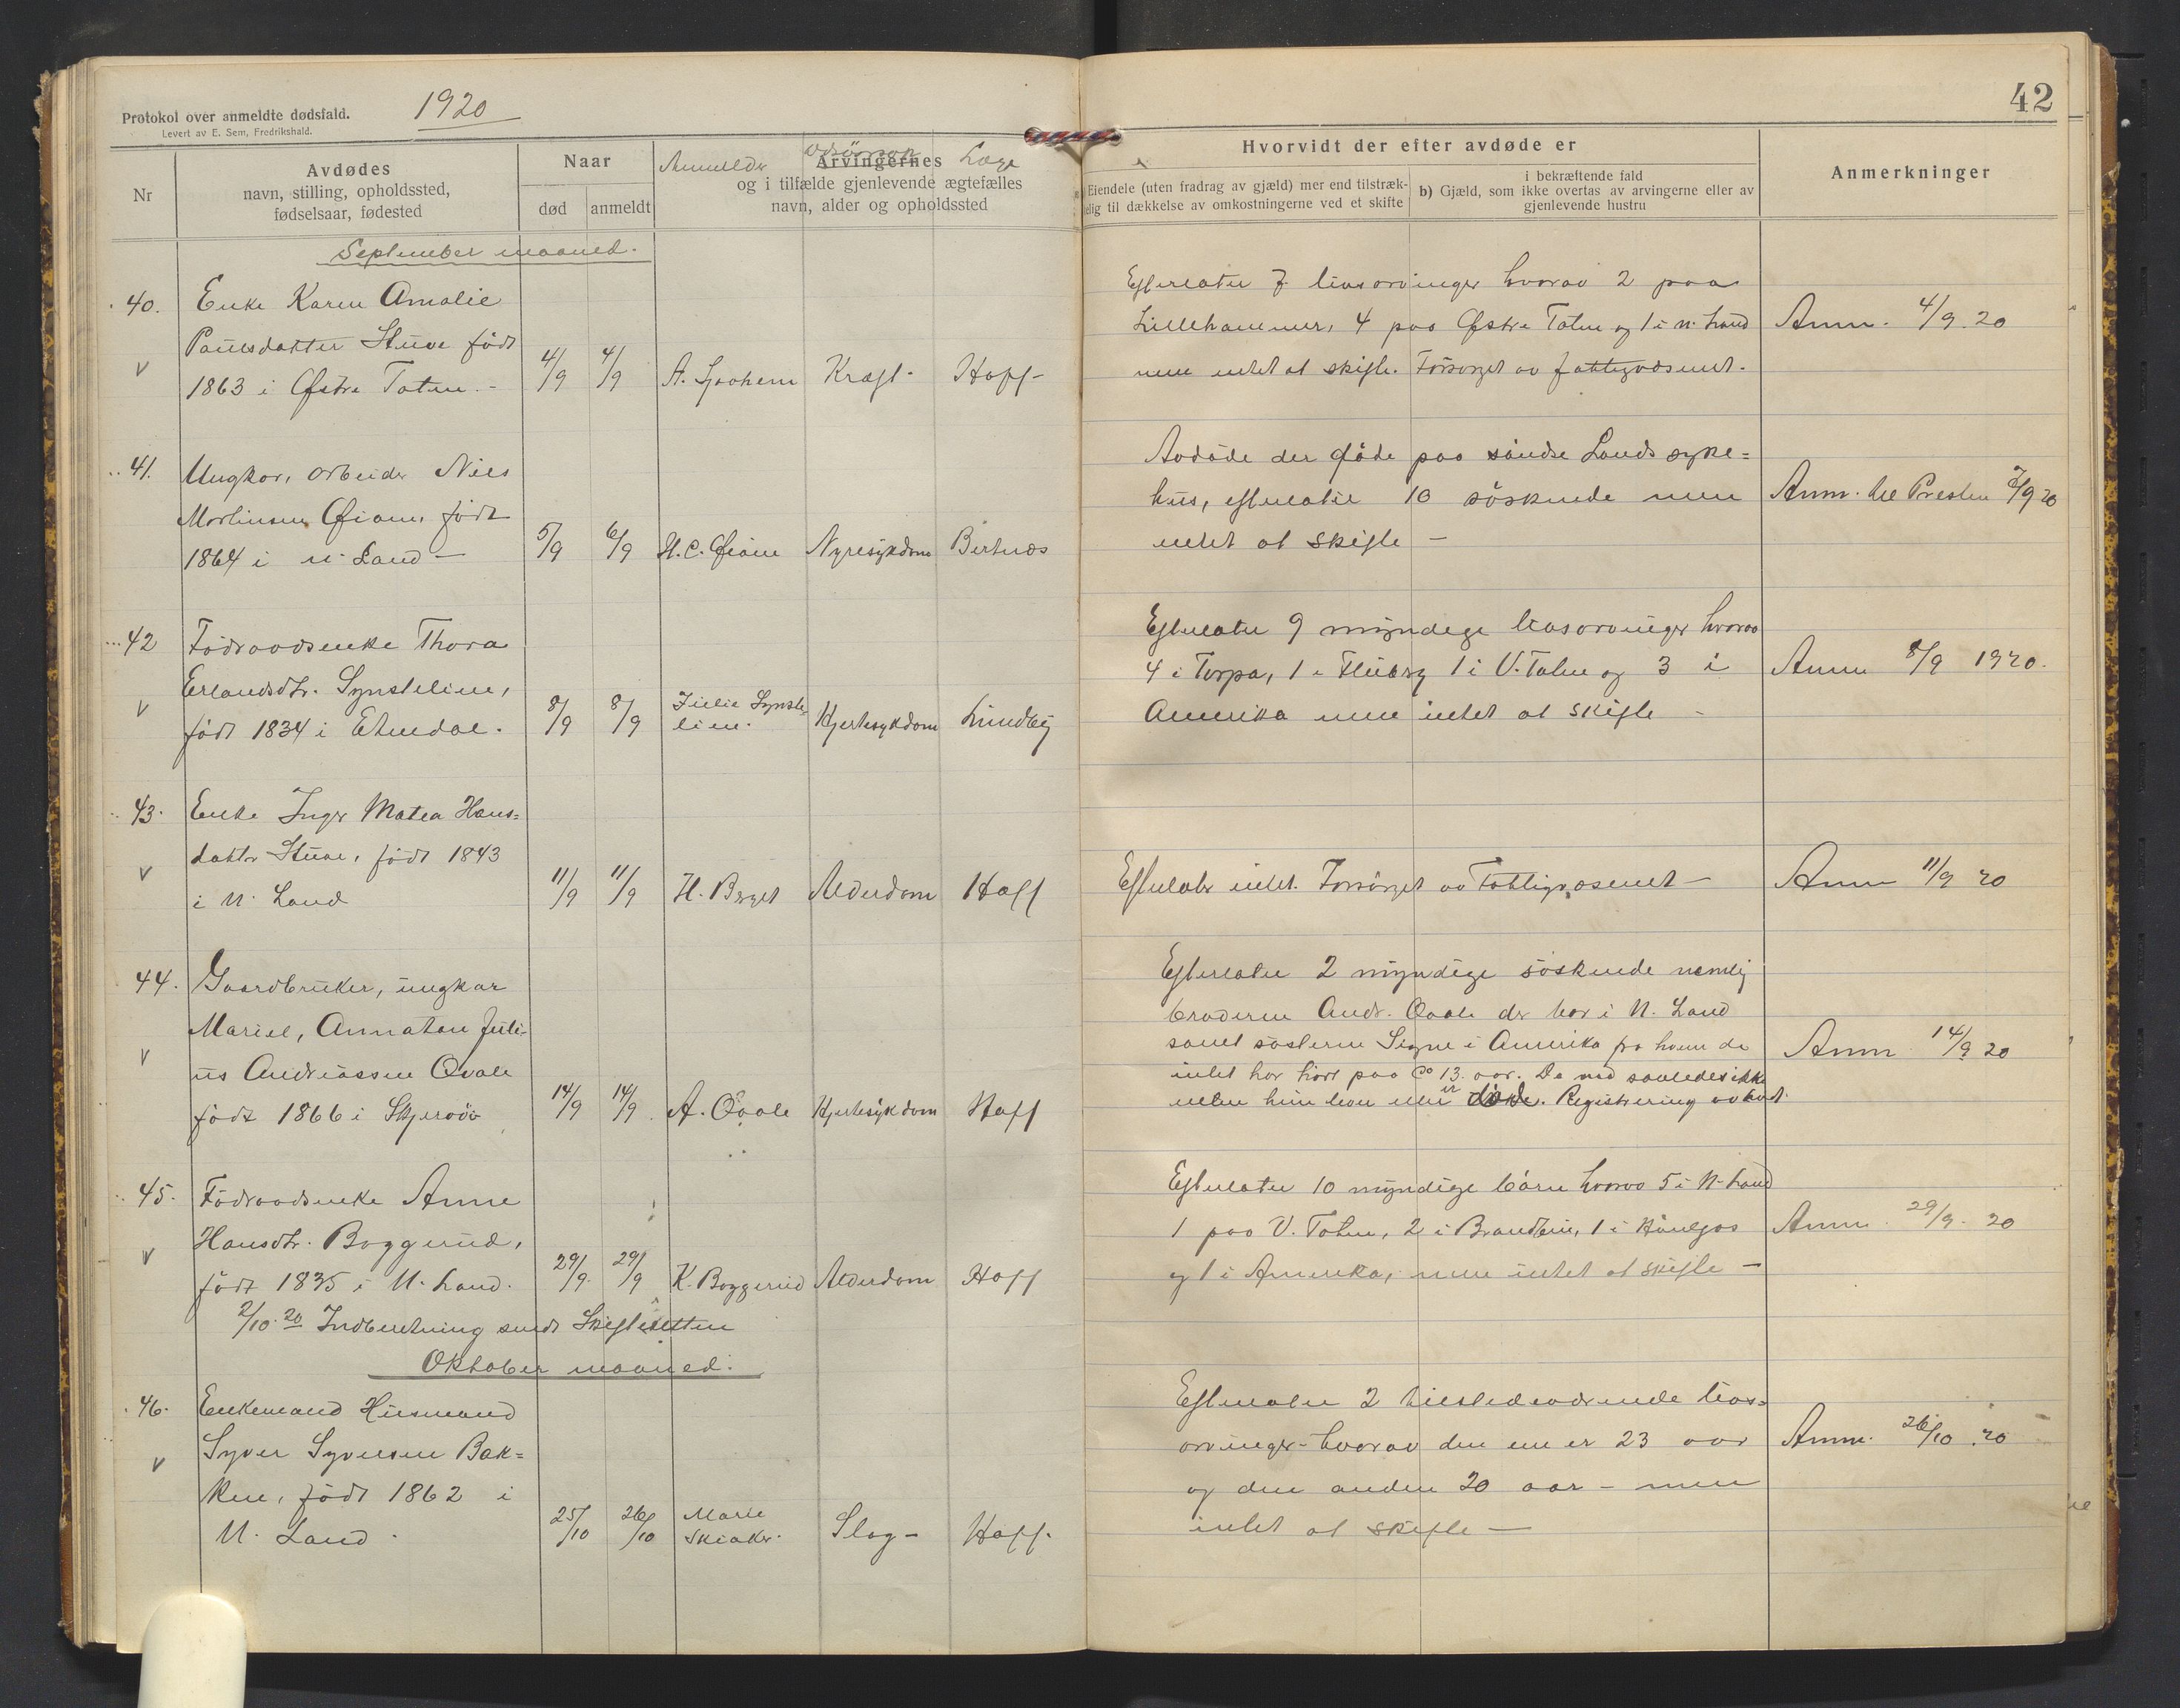 Protokol over anmeldte dødsfald.
1920
Levert av E. Sem, Fredrikshald.
42
Nr
Avdødes
navn, stilling, opholdssted,
fødselsaar, fødested
Naar
død
anmeldt
Anmelder
Læge
Arvingernes
og i tilfælde gjenlevende ægtefælles
navn, alder og opholdssted
Hvorvidt der efter avdøde er
Eiendele (uten fradrag av gjæld) mer end tilstræk-
elig til dækkelse av omkostningerne ved et skifte
i bekræftende fald
b) Gjæld, som ikke overtas av arvingerne eller av
gjenlevende hustru
Anmerkninger
September maaned.
40.
Enke Karen Amalie
Paulsdatter Stuve født
1863 i Østre Toten. -
4/9
4/9
Kræft.
Hoff-
Efterlater 7 livsarvinger hvorav 2 paa
Lillehammer, 4 paa Østre Toten og 1 i N. Land
men intet at skifte. Forsørget av fattigvæsenet.
Anm. 4/9. 20
41.
Ungkar, arbeider Nils
Martinsen Øiom, født
1864 i N. Land -
5/9
6/9
H. C. Øiom
Nyresykdom
Bertnæs
Avdøde der døde paa søndre Lands syke=
hus, efterlater 10 søskende men
intet at skifte -
Anm. til Presten 7/9 20
42
Føderaadsenke Thora
Erlandsdtr. Synstelien,
født 1834 i Etnedal.
8/9
8/9
Julie Synste-
lien.
Hjertesykdom
Lundby
Efterlater 9 myndige livsarvinger hvorav
4 i Torpa, 1 i Fluberg 1 i V. Toten og 3 i
Amerika men intet at skifte -
Anm 8/9 1920.
43.
Enke Inger Matea Hans=
datter Stuve, født 1843
i N. Land
11/9
11/9
H. Berget
Alderdom
Hoff
Efterlater intet. Forsørget av Fattigvæsenet -
Anm 11/9 20
44.
Gaardbruker, ungkar
Mariel, Annaton Juli-
us Andreassen Qvale
født 1866 i
14/9
14/9
A. Qvale
Hjertesykdom
Hoff
Efterlater 2 myndige søskende nemlig
broderen Andr. Qvale der bor i N. Land
samt søsteren Signe i Amerika fra hvem de
intet har hørt paa Ca 13. aar. De ved saaledes ikke
enten hun lever eller er døde. Registrering avholdt.
Anm 14/9 20
45.
Føderaadsenke Anne
Hansdtr. Boggerud,
født 1835 i N. Land.
29/9.
29/9
K. Boggerud
Alderdom
Hoff
Efterlater 10 myndige børn hvorav 5 i N. Land
1 paa V. Toten, 2 i Brandbu, 1 i Hønefos
og 1 i Amerika, men intet at skifte -
Anm. 29/9. 20
2/10. 20 Indberetning sendt Skifteretten
Oktober maaned.
46.
Enkemand Husmand
Syver Syversen Bak=
ken, født 1862 i
N. Land.
25/10
26/10
Marie
Skiaker.
Slag-
Hoff.
Efterlater 2 tilstedeværende livs=
arvinger - hvorav den ene er 23 aar
og den anden 20 aar - men
intet at skifte -
Anm. 26/10. 20